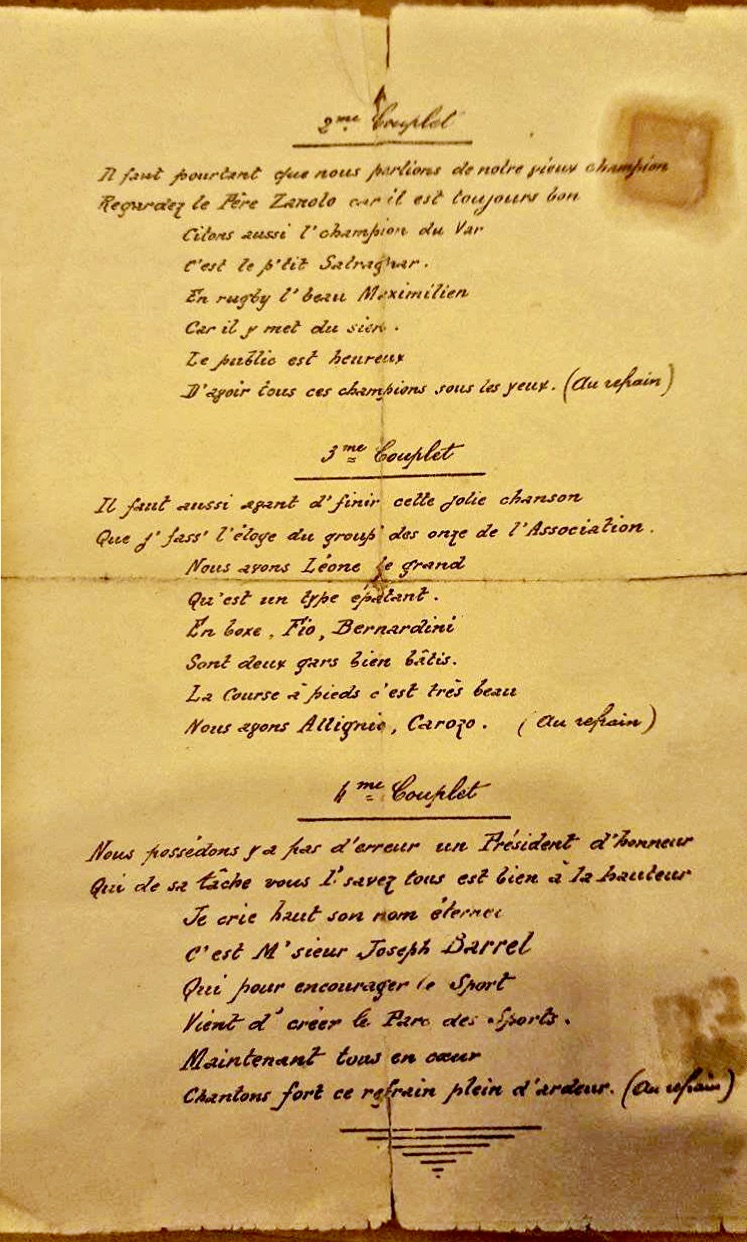 2me Couplet
Il faut pourtant que nous parlions de notre vieux champion
Regardez le Père Zanolo car il est toujours bon
Citons aussi l'champion du Var
C'est le p'tit Salraghar.
En rugby l'beau Maximilien
Car il y met du sien.
Le public est heureux
D'avoir tous ces champions sous les yeux. (Au refrain)
3me Couplet
Il faut aussi avant d'finir cette jolie chanson
Que j'fass' l'éloge du group' des onze de l'Association.
Nous avons Léone le grand
Qu'est un type épatant.
En boxe, Fio, Bernardini
Sont deux gars bien bâtis.
La Course à pieds c'est très beau
Nous avons Attignie, Carozo. (Au refrain)
4me Couplet
Nous possédons y a pas d'erreur un Président d'honneur
Qui de sa tâche vous l'savez tous est bien à la hauteur
Je crie haut son nom éternel
C'est M'sieur Joseph Barrel
Qui pour encourager le Sport
Vient d'créer le Parc des Sports.
Maintenant tous en cœur
Chantons fort ce refrain plein d'ardeur. (Au refrain)